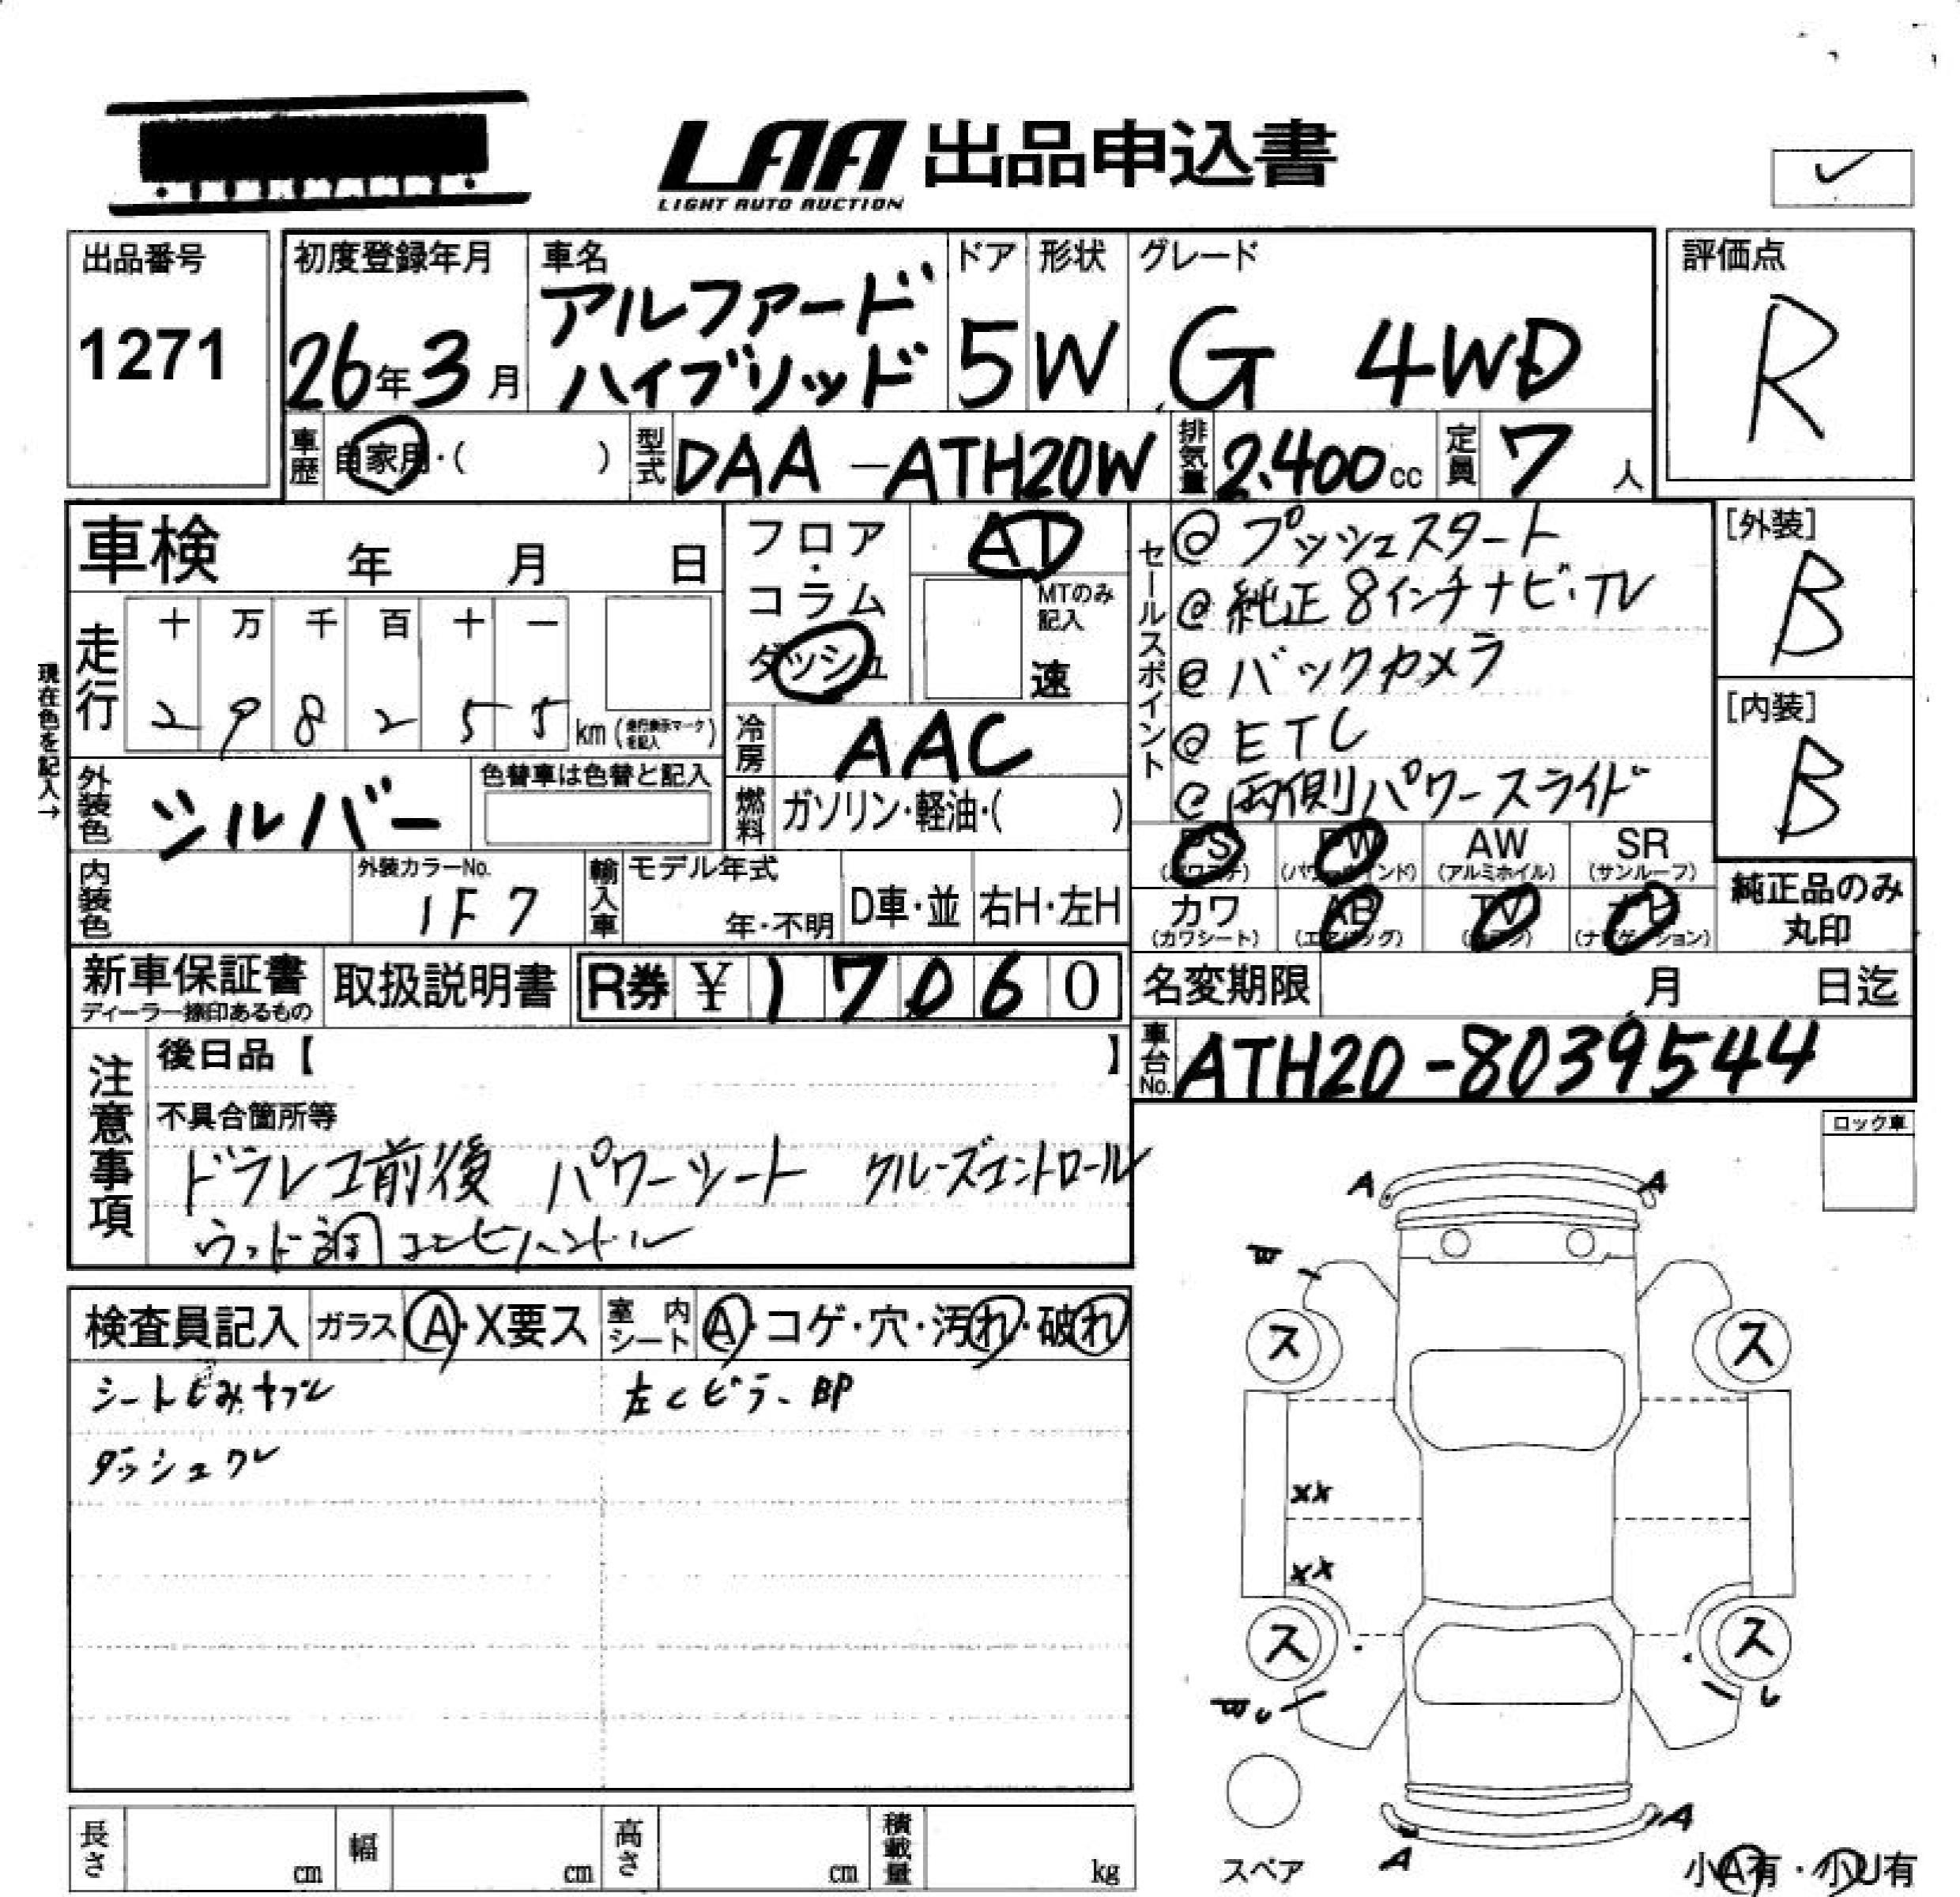 LAA 出品申込書
LIGHT AUTO AUCTION
✓
出品番号
1271
初度登録年月
26年3月
車名
アルファード
ハイブリッド
ドア
5
形状
W
グレード
G 4WD
評価点
R
車歴 自家用・( )
型式 DAA-ATH20W
排気量 2.400cc
定員 7人
車検 年 月 日
フロア・コラム
ダッシュ
AT
MTのみ記入
速
現在色を記入→
走行
十 万 千 百 十 一
2 9 8 2 5 5 km(走行表示マークを記入)
冷房 AAC
外装色 シルバー
色替車は色替と記入
燃料 ガソリン・軽油・( )
内装色
外装カラーNo.
1F7
輸入車
モデル年式
年・不明
D車・並
右H・左H
セールスポイント
@ プッシュスタート
@ 純正8インチナビ・TV
@ バックカメラ
@ ETC
@ 両側パワースライド
[外装]
B
[内装]
B
PS
PW (パワーウインド)
AW (アルミホイル)
SR (サンルーフ)
カワ (カワシート)
AB (エアバッグ)
TV
(ナビゲーション)
純正品のみ
丸印
新車保証書
ディーラー捺印あるもの
取扱説明書
R券 ¥ 1 7 0 6 0
名変期限 月 日迄
車台No. ATH20-8039544
注意事項
後日品【 】
不具合箇所等
ドラレコ前後 パワーシート クルーズコントロール
ウッド調コンビハンドル
ロック車
検査員記入
ガラス A・X要ス
室内シート A・コゲ・穴・汚れ・破れ
左Cピラー凹
A A
ス ス
XX
XX
ス ス
A A
スペア
小A有・小U有
長さ cm
幅 cm
高さ cm
積載量 kg